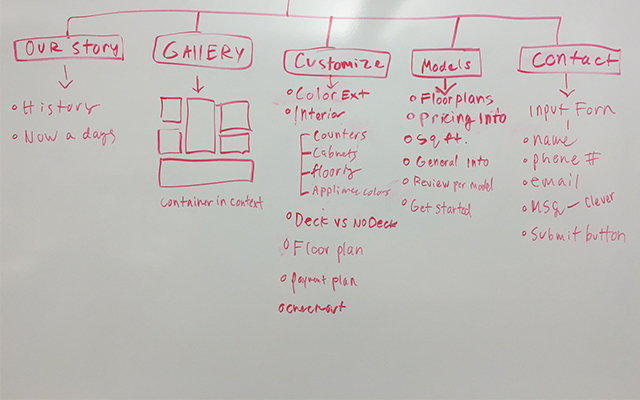 Our Story
History
Now a days
GALLERY
Container in context
Customize
Color Ext
Interior
Counters
Cabnets
floors
Appliance colors
Deck vs No Deck
Floor plan
payment plan
Models
Floorplans
Pricing Info
Sq ft.
General Info
Review per model
Get Started
Contact
Input Form
name
phone #
email
MSG — clever
Submit button